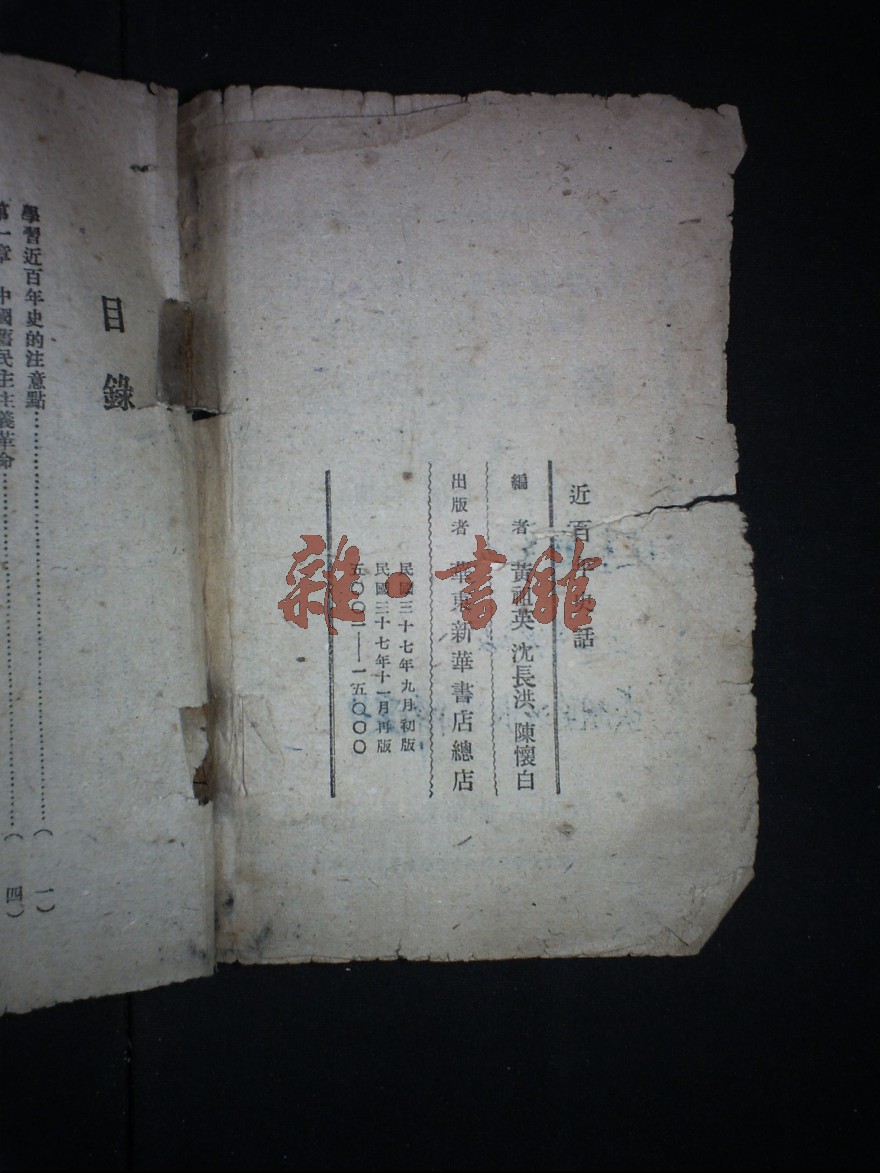 近百年史話
編者 黃祖英、沈長洪、陳懷白
出版者 華東新華書店總店
民國三十七年九月初版
民國三十七年十一月再版
五〇〇一——一五〇〇〇
目錄
學習近百年史的注意點……（一）
第一章 中國舊民主主義革命……（四）
雜·書館